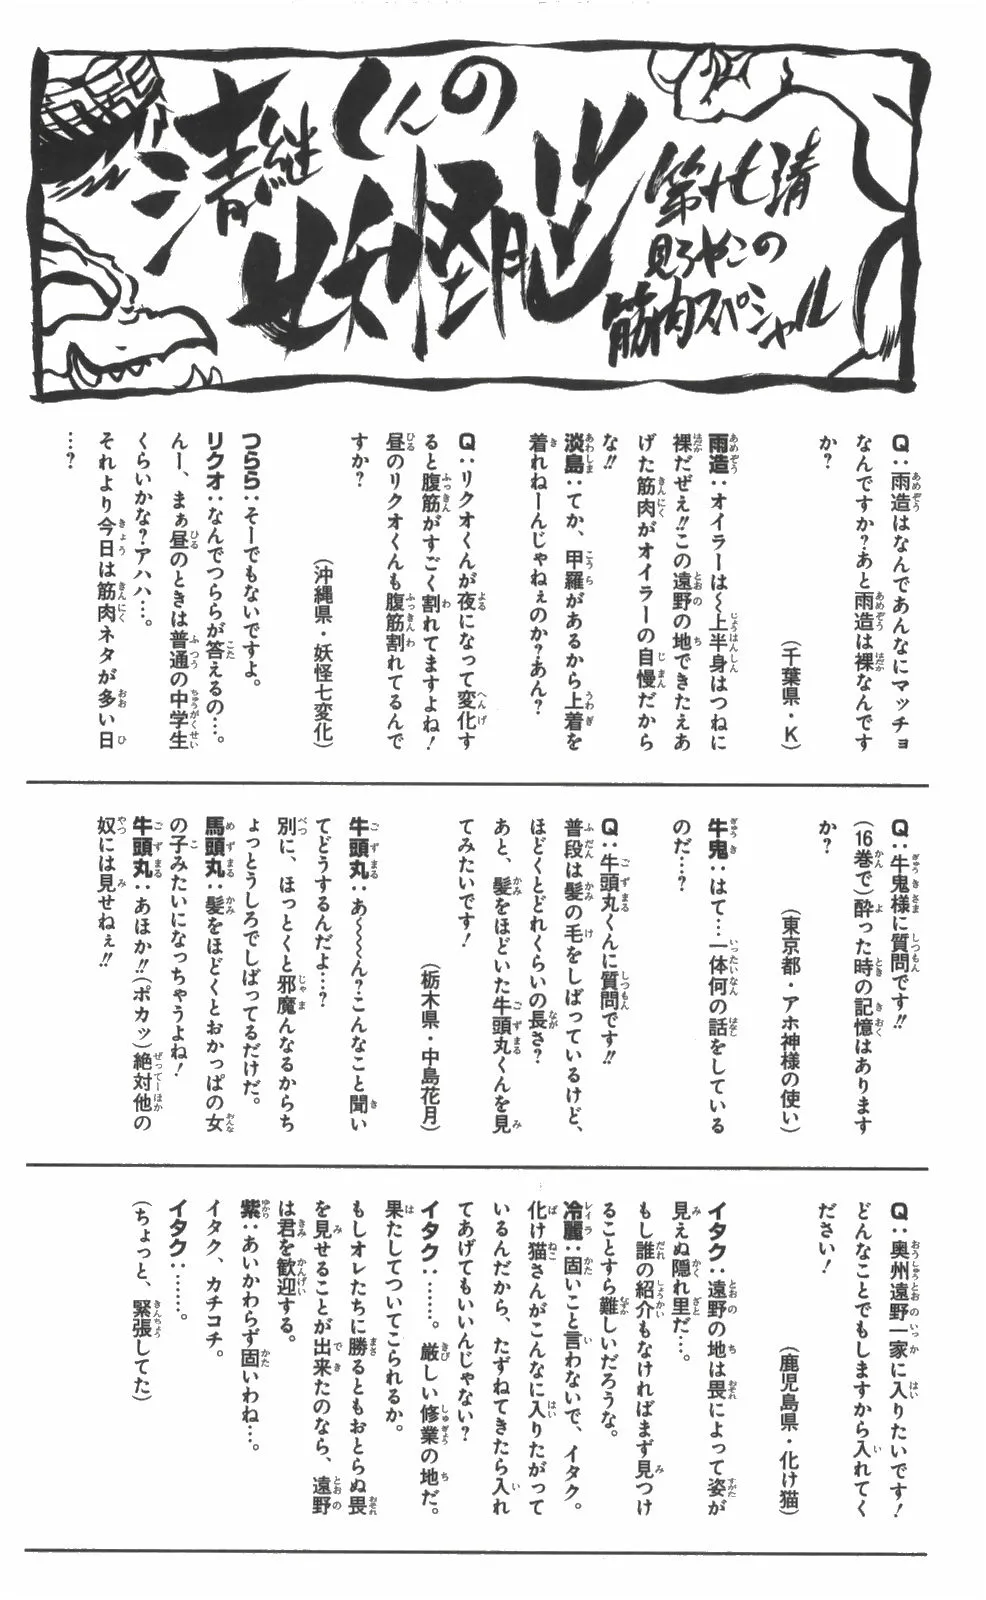 清継くんの
妖怪脳
第十七清
見ろやこの
筋肉スペシャル
Q：雨造はなんであんなにマッチョ
なんですか？あと雨造は裸なんです
か？
（千葉県・K）
雨造：オイラーは〜上半身はつねに
裸だぜえ!!この遠野の地できたえあ
げた筋肉がオイラーの自慢だから
な!!
淡島：てか、甲羅があるから上着を
着れねーんじゃねぇのか？あん？
Q：リクオくんが夜になって変化す
ると腹筋がすごく割れてますよね！
昼のリクオくんも腹筋割れてるんで
すか？
（沖縄県・妖怪七変化）
つらら：そーでもないですよ。
リクオ：なんでつららが答えるの…。
んー、まぁ昼のときは普通の中学生
くらいかな？アハハ…。
それより今日は筋肉ネタが多い日
…？
Q：牛鬼様に質問です!!
（16巻で）酔った時の記憶はあります
か？
（東京都・アホ神様の使い）
牛鬼：はて…一体何の話をしている
のだ…？
Q：牛頭丸くんに質問です!!
普段は髪の毛をしばっているけど、
ほどくとどれくらいの長さ？
あと、髪をほどいた牛頭丸くんを見
てみたいです！
（栃木県・中島花月）
牛頭丸：あ〜〜〜ん？こんなこと聞い
てどうするんだよ…？
別に、ほっとくと邪魔んなるからち
ょっとうしろでしばってるだけだ。
馬頭丸：髪をほどくとおかっぱの女
の子みたいになっちゃうよね！
牛頭丸：あほか!!（ポカッ）絶対他の
奴には見せねぇ!!
Q：奥州遠野一家に入りたいです！
どんなことでもしますから入れてく
ださい！
（鹿児島県・化け猫）
イタク：遠野の地は畏によって姿が
見えぬ隠れ里だ…。
もし誰の紹介もなければまず見つけ
ることすら難しいだろうな。
冷麗：固いこと言わないで、イタク。
化け猫さんがこんなに入りたがって
いるんだから、たずねてきたら入れ
てあげてもいいんじゃない？
イタク：……。厳しい修業の地だ。
果たしてついてこられるか。
もしオレたちに勝るともおとらぬ畏
を見せることが出来たのなら、遠野
は君を歓迎する。
紫：あいかわらず固いわね…。
イタク、カチコチ。
イタク：………。
（ちょっと、緊張してた）